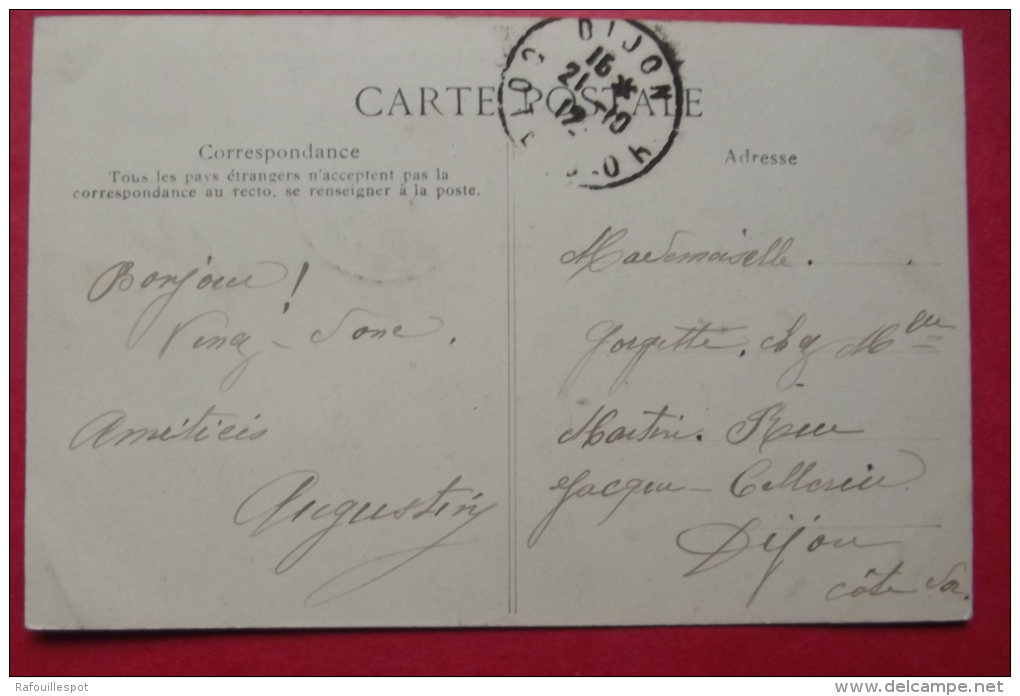 CARTE POSTALE
Correspondance
Tous les pays étrangers n'acceptent pas la
correspondance au recto, se renseigner à la poste.
Bonjour !
Venez donc.
Amitiés
Augustin
DIJON
16 *
21-10
12
COTE D'OR
Adresse
Mademoiselle.
Gorgette. chez Mlle
Martin. Rue
Jacque-Cellerier
Dijon
côte dor.
Rafouillespot
www.delcampe.net